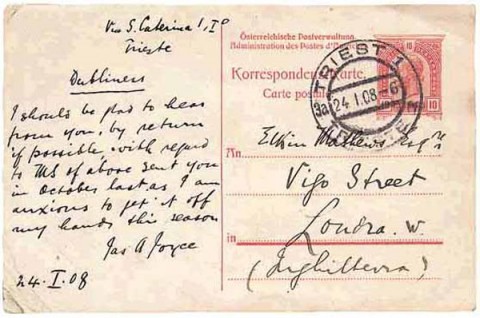 Via S. Caterina 1, I°
Trieste
Dubliners
I should be glad to hear
from you, by return
if possible with regard
to MS of above sent you
in October last as I am
anxious to get it off
my hands this season
Jas A Joyce
24.I.08
Österreichische Postverwaltung.
Administration des Postes d'
Korrespondenz-Karte.
Carte postale
TRIEST 1
3a 24 1.08-6
10
10
An Elkin Mathews Esqre
Vigo Street
in Londra. W.
(Inghilterra)